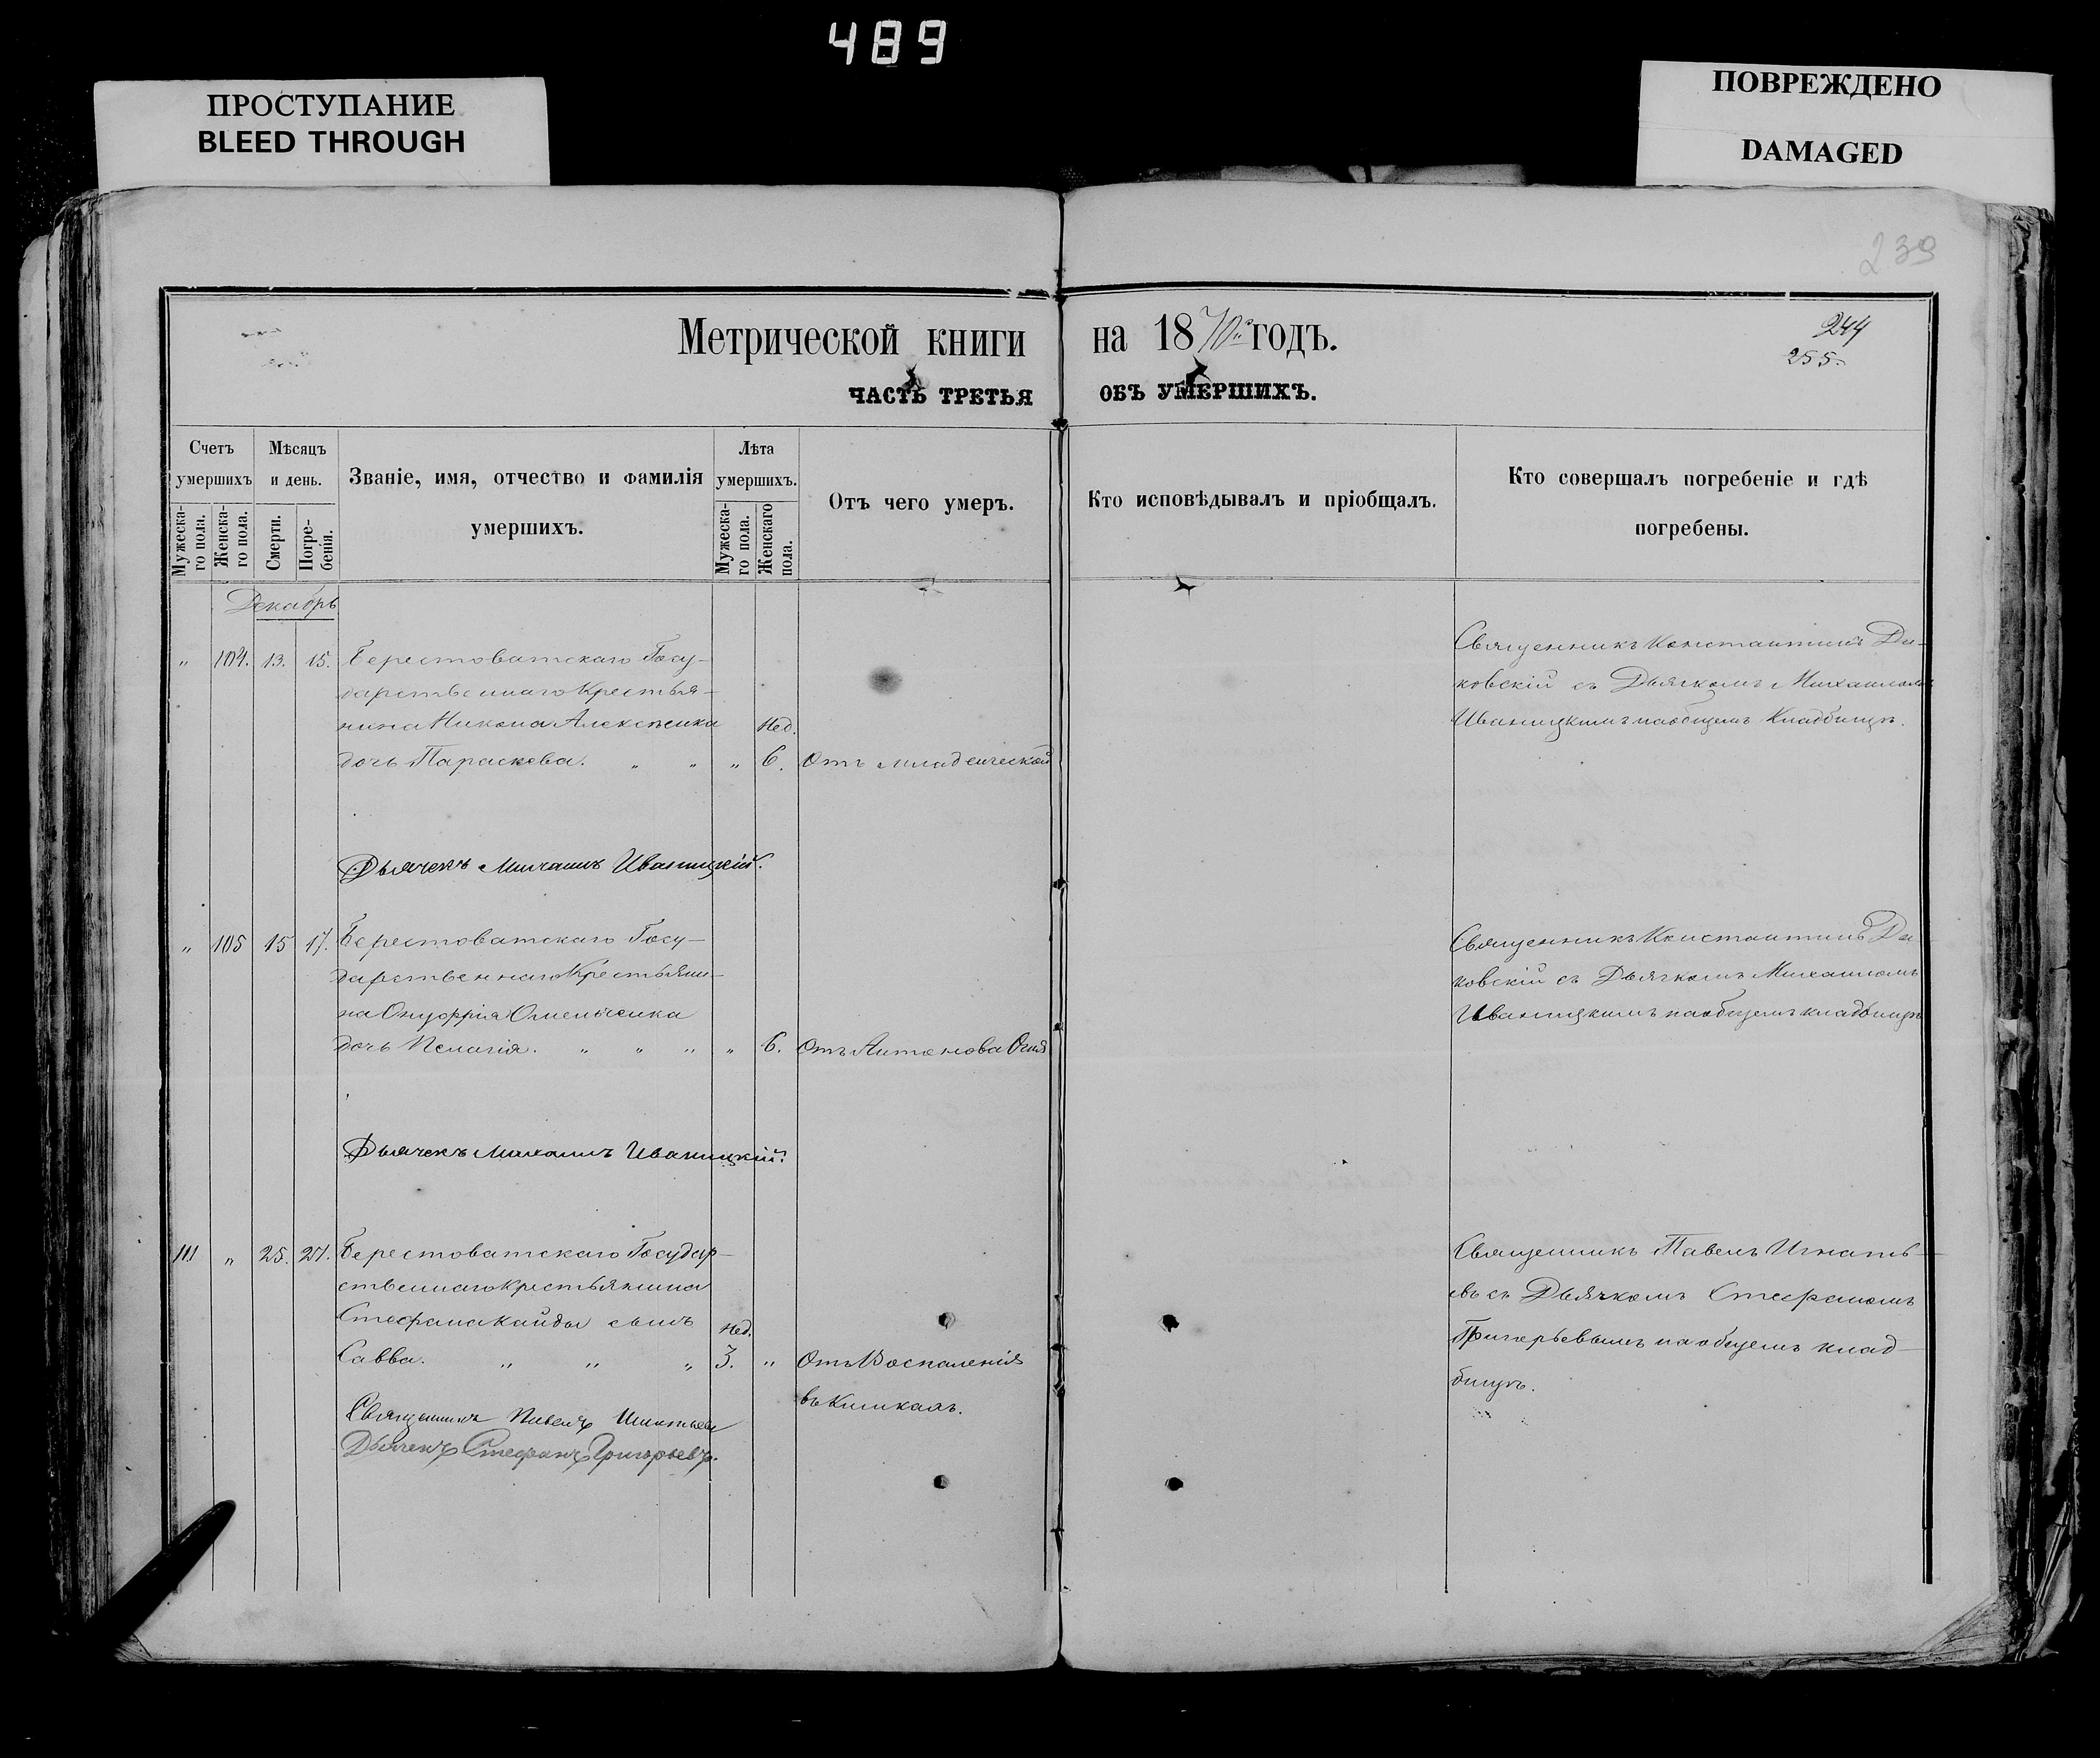 489
ПРОСТУПАНИЕ
BLEED THROUGH
ПОВРЕЖДЕНО
DAMAGED
239
Метрической книги на 1870й годъ.
244
255
ЧАСТЬ ТРЕТЬЯ ОБЪ УМЕРШИХЪ.
Счетъ умершихъ
Мужеска-го пола.
Женска-го пола.
Мѣсяцъ и день.
Смерти.
Погре-бенія.
Званіе, имя, отчество и фамилія умершихъ.
Лѣта умершихъ.
Мужеска-го пола.
Женскаго пола.
Отъ чего умеръ.
Кто исповѣдывалъ и пріобщалъ.
Кто совершалъ погребеніе и гдѣ погребены.
Декабрь
„ 104. 13. 15. Берестоватскаго Госу-
дарственнаго Крестья-
нина Никона Алексѣенка Нед.
дочь Параскева. „ „ „ 6. Отъ младенческой
Священникъ Константинъ Ди-
ковскій съ Дьячкомъ Михаиломъ
Иваницкимъ на общемъ Кладбищѣ.
Дьячекъ Михаилъ Иваницкій.
„ 105 15 17. Берестоватскаго Госу-
дарственнаго Крестьяни-
на Онуфрія Омельченка
дочь Пелагія. „ „ „ „ 6. Отъ Антонова Огня
Священникъ Константинъ Ди
ковскій съ Дьячкомъ Михаиломъ
Иваницкимъ на общемъ кладбищѣ
Дьячекъ Михаилъ Иваницкій.
111 „ 25. 27. Берестоватскаго Государ-
ственнаго крестьянина
Стефана Кайды сынъ Нед.
Савва. „ „ „ 3. „ Отъ Воспаленія
въ Кишкахъ.
Священникъ Павелъ Игнать-
евъ съ Дьячкомъ Стефаномъ
Григорьевымъ на общемъ клад-
бищѣ.
Священникъ Павелъ Игнатьевъ
Дьячекъ Стефанъ Григорьевъ.